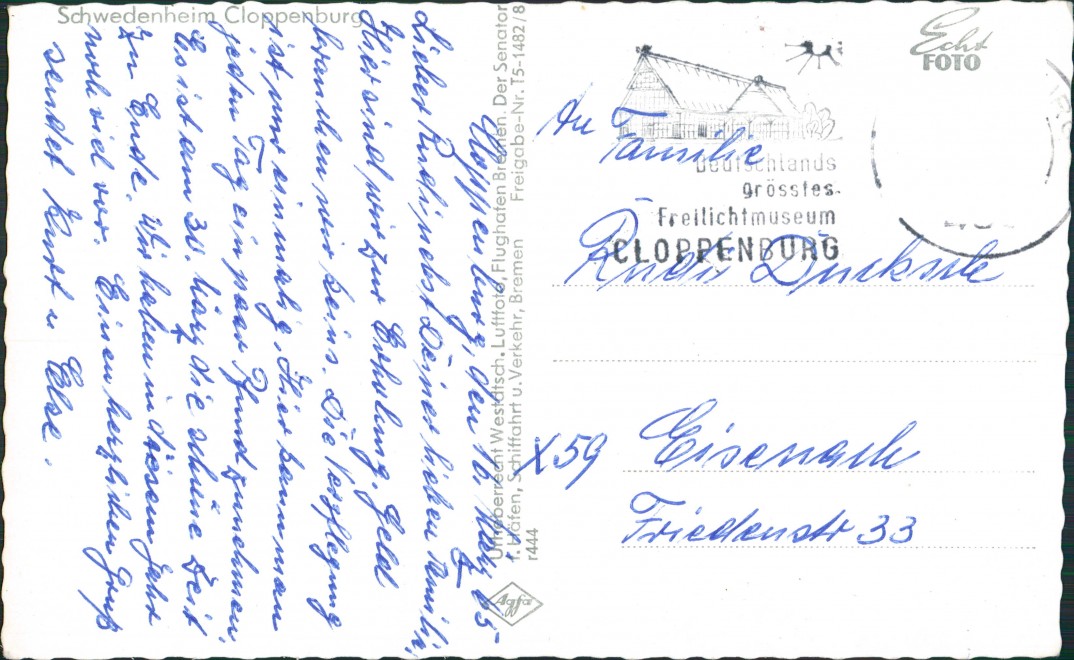 Schwedenheim Cloppenburg
Cloppenburg, den 16. März 65
Lieber Rudi, nebst Deiner lieben Familie,
Hier sind wir zur Erholung. Geld
brauchen wir keins. Die Verpflegung
ist nur einmalig. Hier kann man
jeden Tag ein paar Pfund zunehmen.
Es ist am 30. März die schöne Zeit
zu Ende. Wir haben in diesem Jahr
noch viel vor. Einen herzlichen Gruß
sendet Kurt u Else.
Urheberrecht Westdtsch. Luftfoto, Flughafen Bremen. Der Senator
f. Häfen, Schiffahrt u. Verkehr, Bremen Freigabe-Nr. T5-1482/8
r444
Agfa
Echt
FOTO
Deutschlands
grösstes
Freilichtmuseum
CLOPPENBURG
An
Familie
Rudi
X59 Eisenach
Friedenstr 33